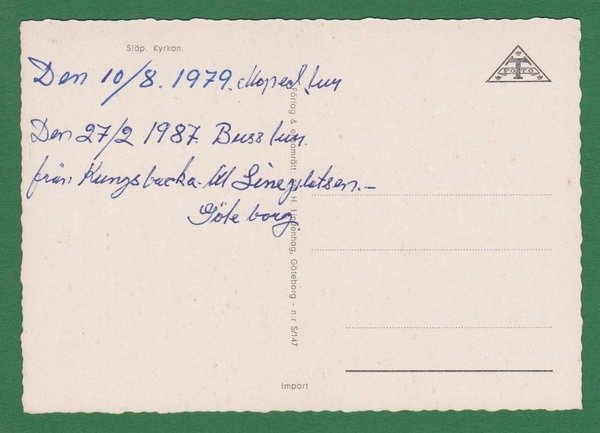 Släp. Kyrkan.
T
FOTO
Den 10/8. 1979. Moped tur
Den 27/2 1987. Buss tur.
från Kungsbacka till Linéplatsen.-
Göteborg
Förlag & ensamrätt: H. Lindenhag, Göteborg - n:r S/147
Import